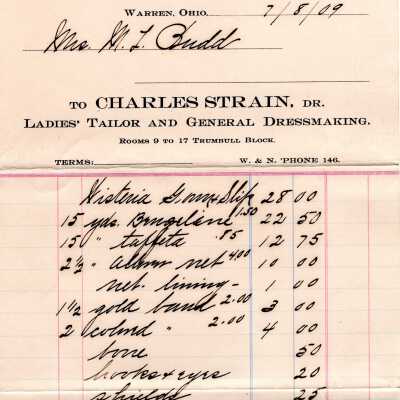 WARREN, OHIO, 7/8/09
Mrs. M. L. Budd
TO CHARLES STRAIN, DR.
LADIES' TAILOR AND GENERAL DRESSMAKING.
ROOMS 9 TO 17 TRUMBULL BLOCK.
TERMS: W. & N. 'PHONE 146.
Wisteria Gown & Slip 28 00
15 yds. Bengaline 1.50 22 50
15 " taffeta .85 12 75
2 1/2 " net 4.00 10 00
net. lining - 1 00
1 1/2 gold band 2.00 3 00
2 colord " 2.00 4 00
bone 50
hooks & eyes 20
shields 25